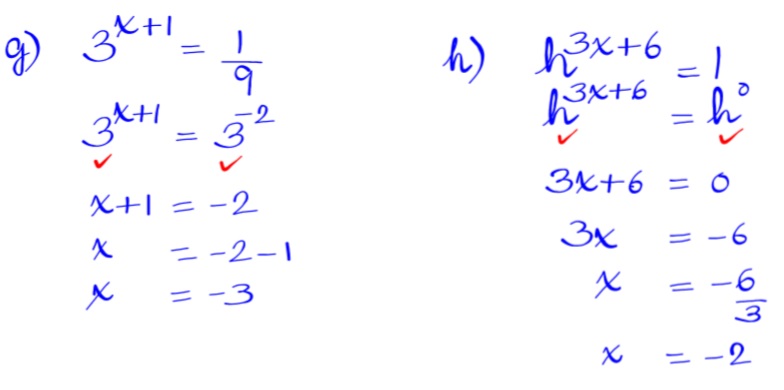 g) 3^{x+1} = \frac{1}{9}
3^{x+1} = 3^{-2}
x+1 = -2
x = -2-1
x = -3
h) h^{3x+6} = 1
h^{3x+6} = h^0
3x+6 = 0
3x = -6
x = \frac{-6}{3}
x = -2